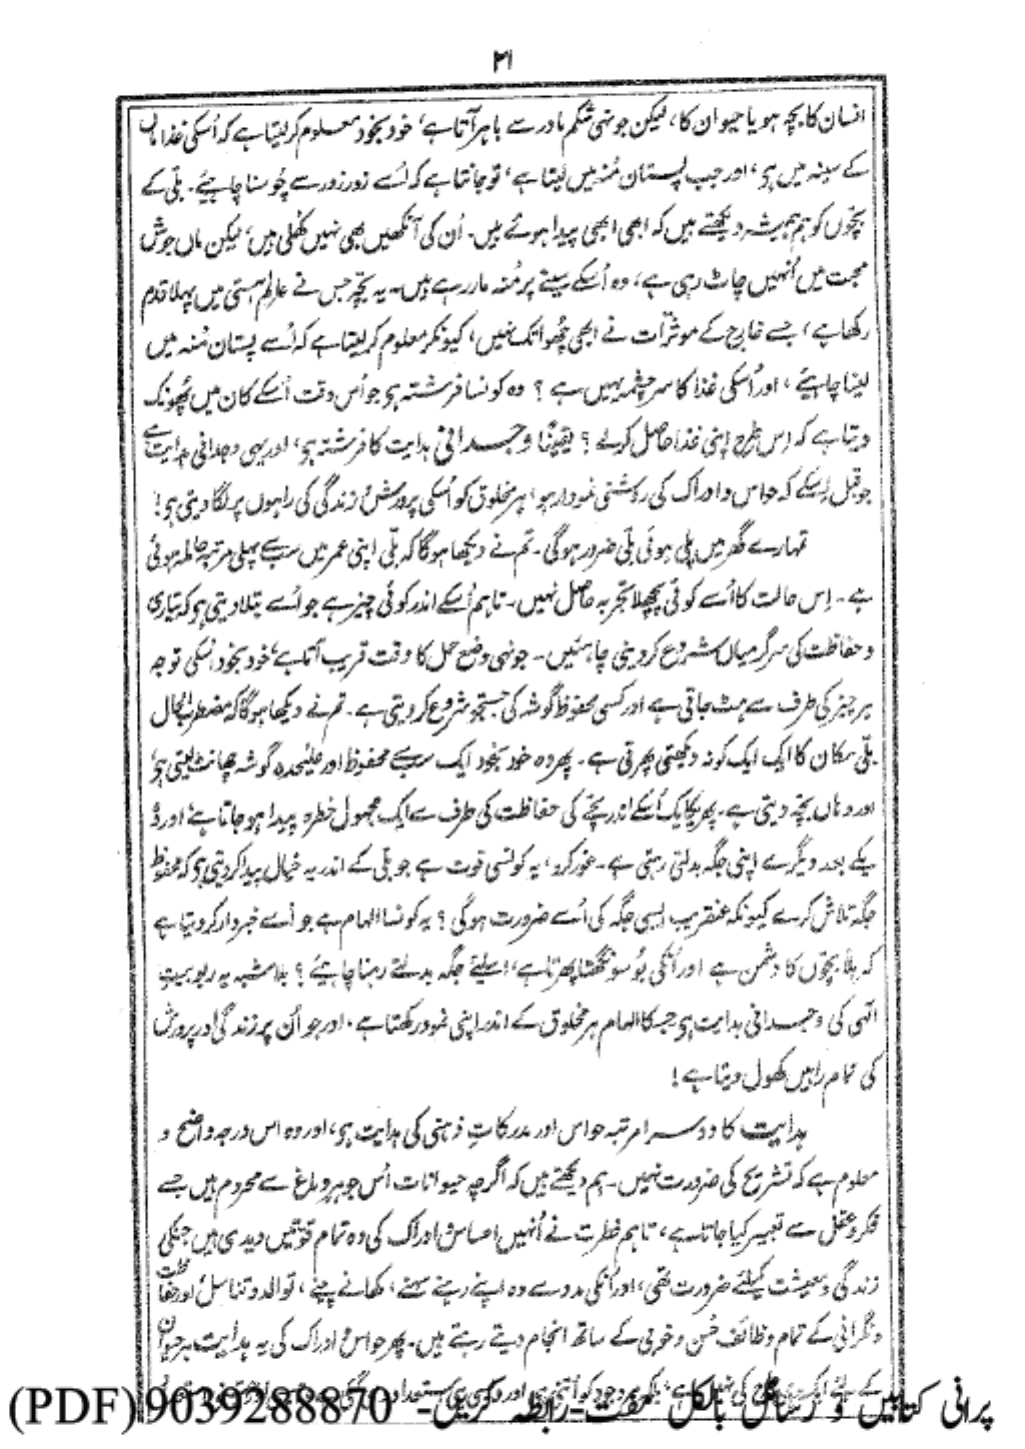 ۲۱
انسان کا بچہ ہو یا حیوان کا، لیکن جونہی شکم مادر سے باہر آتا ہے، خود بخود معلوم کر لیتا ہے کہ اُسکی غذا ماں
کے سینہ میں ہی، اور جب پستان مُنہ میں لیتا ہے، تو جانتا ہے کہ اُسے زور زور سے چُوسنا چاہیئے۔ بلّی کے
بچّوں کو ہم ہمیشہ دیکھتے ہیں کہ ابھی ابھی پیدا ہوئے ہیں۔ اُن کی آنکھیں بھی نہیں کھُلی ہیں، لیکن ماں جوش
محبت میں اُنہیں چاٹ رہی ہے، وہ اُسکے سینے پر مُنہ مار رہے ہیں۔ یہ بچّہ جس نے عالمِ ہستی میں پہلا قدم
رکھا ہے، جسے خارج کے موثرات نے ابھی چُھوا تک نہیں، کیونکر معلوم کر لیتا ہے کہ اُسے پستان مُنہ میں
لینا چاہیئے، اور اُسکی غذا کا سرچشمہ یہیں ہے؟ وہ کونسا فرشتہ ہی جو اُس وقت اُسکے کان میں پُھونک
دیتا ہے کہ اِس طرح اپنی غذا حاصل کرلے؟ یقیناً وجدانی ہدایت کا فرشتہ ہی، اور یہی وجدانی ہدایت ہے
جو قبل اِسکے کہ حواس و ادراک کی روشنی نمودار ہو، ہر مخلوق کو اُسکی پرورش و زندگی کی راہوں پر لگا دیتی ہی!
تمہارے گھر میں پلی ہوئی بلّی ضرور ہوگی۔ تم نے دیکھا ہوگا کہ بلّی اپنی عمر میں سب سے پہلی مرتبہ حاملہ ہوئی
ہے۔ اِس حالت کا اُسے کوئی پچھلا تجربہ حاصل نہیں۔ تاہم اُسکے اندر کوئی چیز ہے جو اُسے بتلا دیتی ہی کہ تیاری
و حفاظت کی سرگرمیاں شروع کر دینی چاہئیں۔ جونہی وضع حمل کا وقت قریب آتا ہے، خود بخود اُسکی توجہ
ہر چیز کی طرف سے ہٹ جاتی ہے اور کسی محفوظ گوشہ کی جستجو شروع کر دیتی ہے۔ تم نے دیکھا ہوگا کہ مضطرب الحال
بلّی مکان کا ایک ایک کونہ دیکھتی پھرتی ہے۔ پھر وہ خود بخود ایک سب سے محفوظ اور علیٰحدہ گوشہ چھانٹ لیتی ہی،
اور وہاں بچّہ دیتی ہے۔ پھر یکایک اُسکے اندر بچّے کی حفاظت کی طرف سے ایک مجہول خطرہ پیدا ہو جاتا ہے، اور وہ
یکے بعد دیگرے اپنی جگہ بدلتی رہتی ہے۔ غور کرو، یہ کونسی قوت ہے جو بلّی کے اندر یہ خیال پیدا کر دیتی ہی کہ محفوظ
جگہ تلاش کرے کیونکہ عنقریب ایسی جگہ کی اُسے ضرورت ہوگی؟ یہ کونسا الہام ہے جو اُسے خبردار کر دیتا ہے
کہ بِلّا بچّوں کا دشمن ہے اور اُنکی بُو سونگھتا پھرتا ہے، اسلیئے جگہ بدلتے رہنا چاہیئے؟ بلاشبہ یہ ربوبیتِ
الٰہی کی وجدانی ہدایت ہی جسکا الہام ہر مخلوق کے اندر اپنی نمود رکھتا ہے، اور جو اُن پر زندگی اور پرورش
کی تمام راہیں کھول دیتا ہے!
ہدایت کا دوسرا مرتبہ حواس اور مدرکاتِ ذہنی کی ہدایت ہی، اور وہ اس درجہ واضح و
معلوم ہے کہ تشریح کی ضرورت نہیں۔ ہم دیکھتے ہیں کہ اگرچہ حیوانات اُس جوہرِ دماغ سے محروم ہیں جسے
فکر و عقل سے تعبیر کیا جاتا ہے، تاہم فطرت نے اُنہیں احساس و ادراک کی وہ تمام قوّتیں دیدی ہیں جنکی
زندگی و معیشت کیلئے ضرورت تھی، اور اُنکی مدد سے وہ اپنے رہنے سہنے، کھانے پینے، توالد و تناسل اور حفاظت
و نگرانی کے تمام وظائف حُسن و خوبی کے ساتھ انجام دیتے رہتے ہیں۔ پھر حواس و ادراک کی یہ ہدایت ہر حیوان
کے لئے ایک ہی طرح کی نہیں ہے، بلکہ ہر وجود کو اُتنی ہی اور ویسی ہی استعداد دی گئی ہے
پرانی کتابیں و رسائل بالکل مفت-رابطہ کریں- 9039288870(PDF)